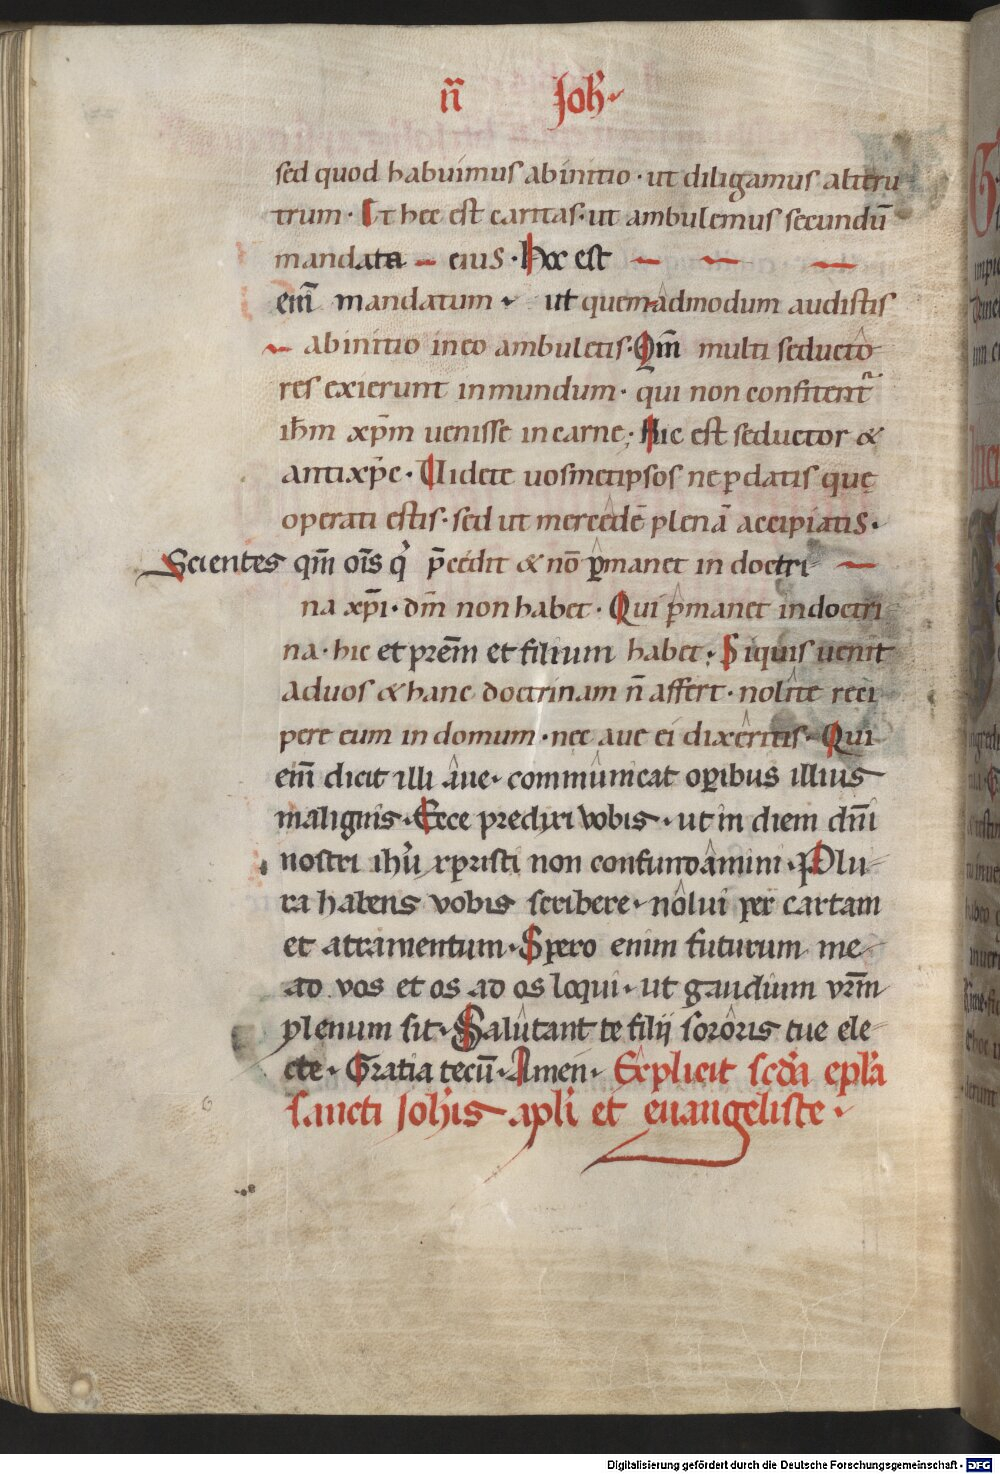 ıı Joh̄
sed quod habuimus ab initio · ut diligamus alteru
trum · Et hec est caritas · ut ambulemus secundū
mandata eius · Hoc est
enī mandatum · ut quemadmodum audistis
ab initio in eo ambuletis · Qm̄ multi seducto
res exierunt in mundum · qui non confitent᷑
ih̄m xp̄m uenisse in carne ; Hic est seductor &
antixp̄c · Uidete uosmetipsos ne ꝑdatis quę
operati estis · sed ut mercedē plenā accipiatis ·
Scientes qm̄ oīs q' p̄cedit & nō ꝑmanet in doctri
na xp̄i · dm̄ non habet · Qui ꝑmanet in doctri
na · hic et prēm et filium habet ; Si quis uenit
ad uos & hanc doctrinam n̄ affert · nolite reci
pere eum in domum · nec aue ei dixeritis · Qui
enī dicit illi aue · communicat oꝑibus illius
malignis · Ecce predixi vobis · ut in diem dn̄i
nostri ihū xpristi non confundamini · Plu
ra habens vobis scribere · nolui per cartam
et atramentum · Spero enim futurum me
ad vos et os ad os loqui · ut gaudium vrm̄
plenum sit · Salutant te filij sororis tue ele
cte · Gratia tecū · Amen · Explicit scd̄a epl̄a
sancti Joh̄is apl̄i et euangeliste ·
Digitalisierung gefördert durch die Deutsche Forschungsgemeinschaft - DFG